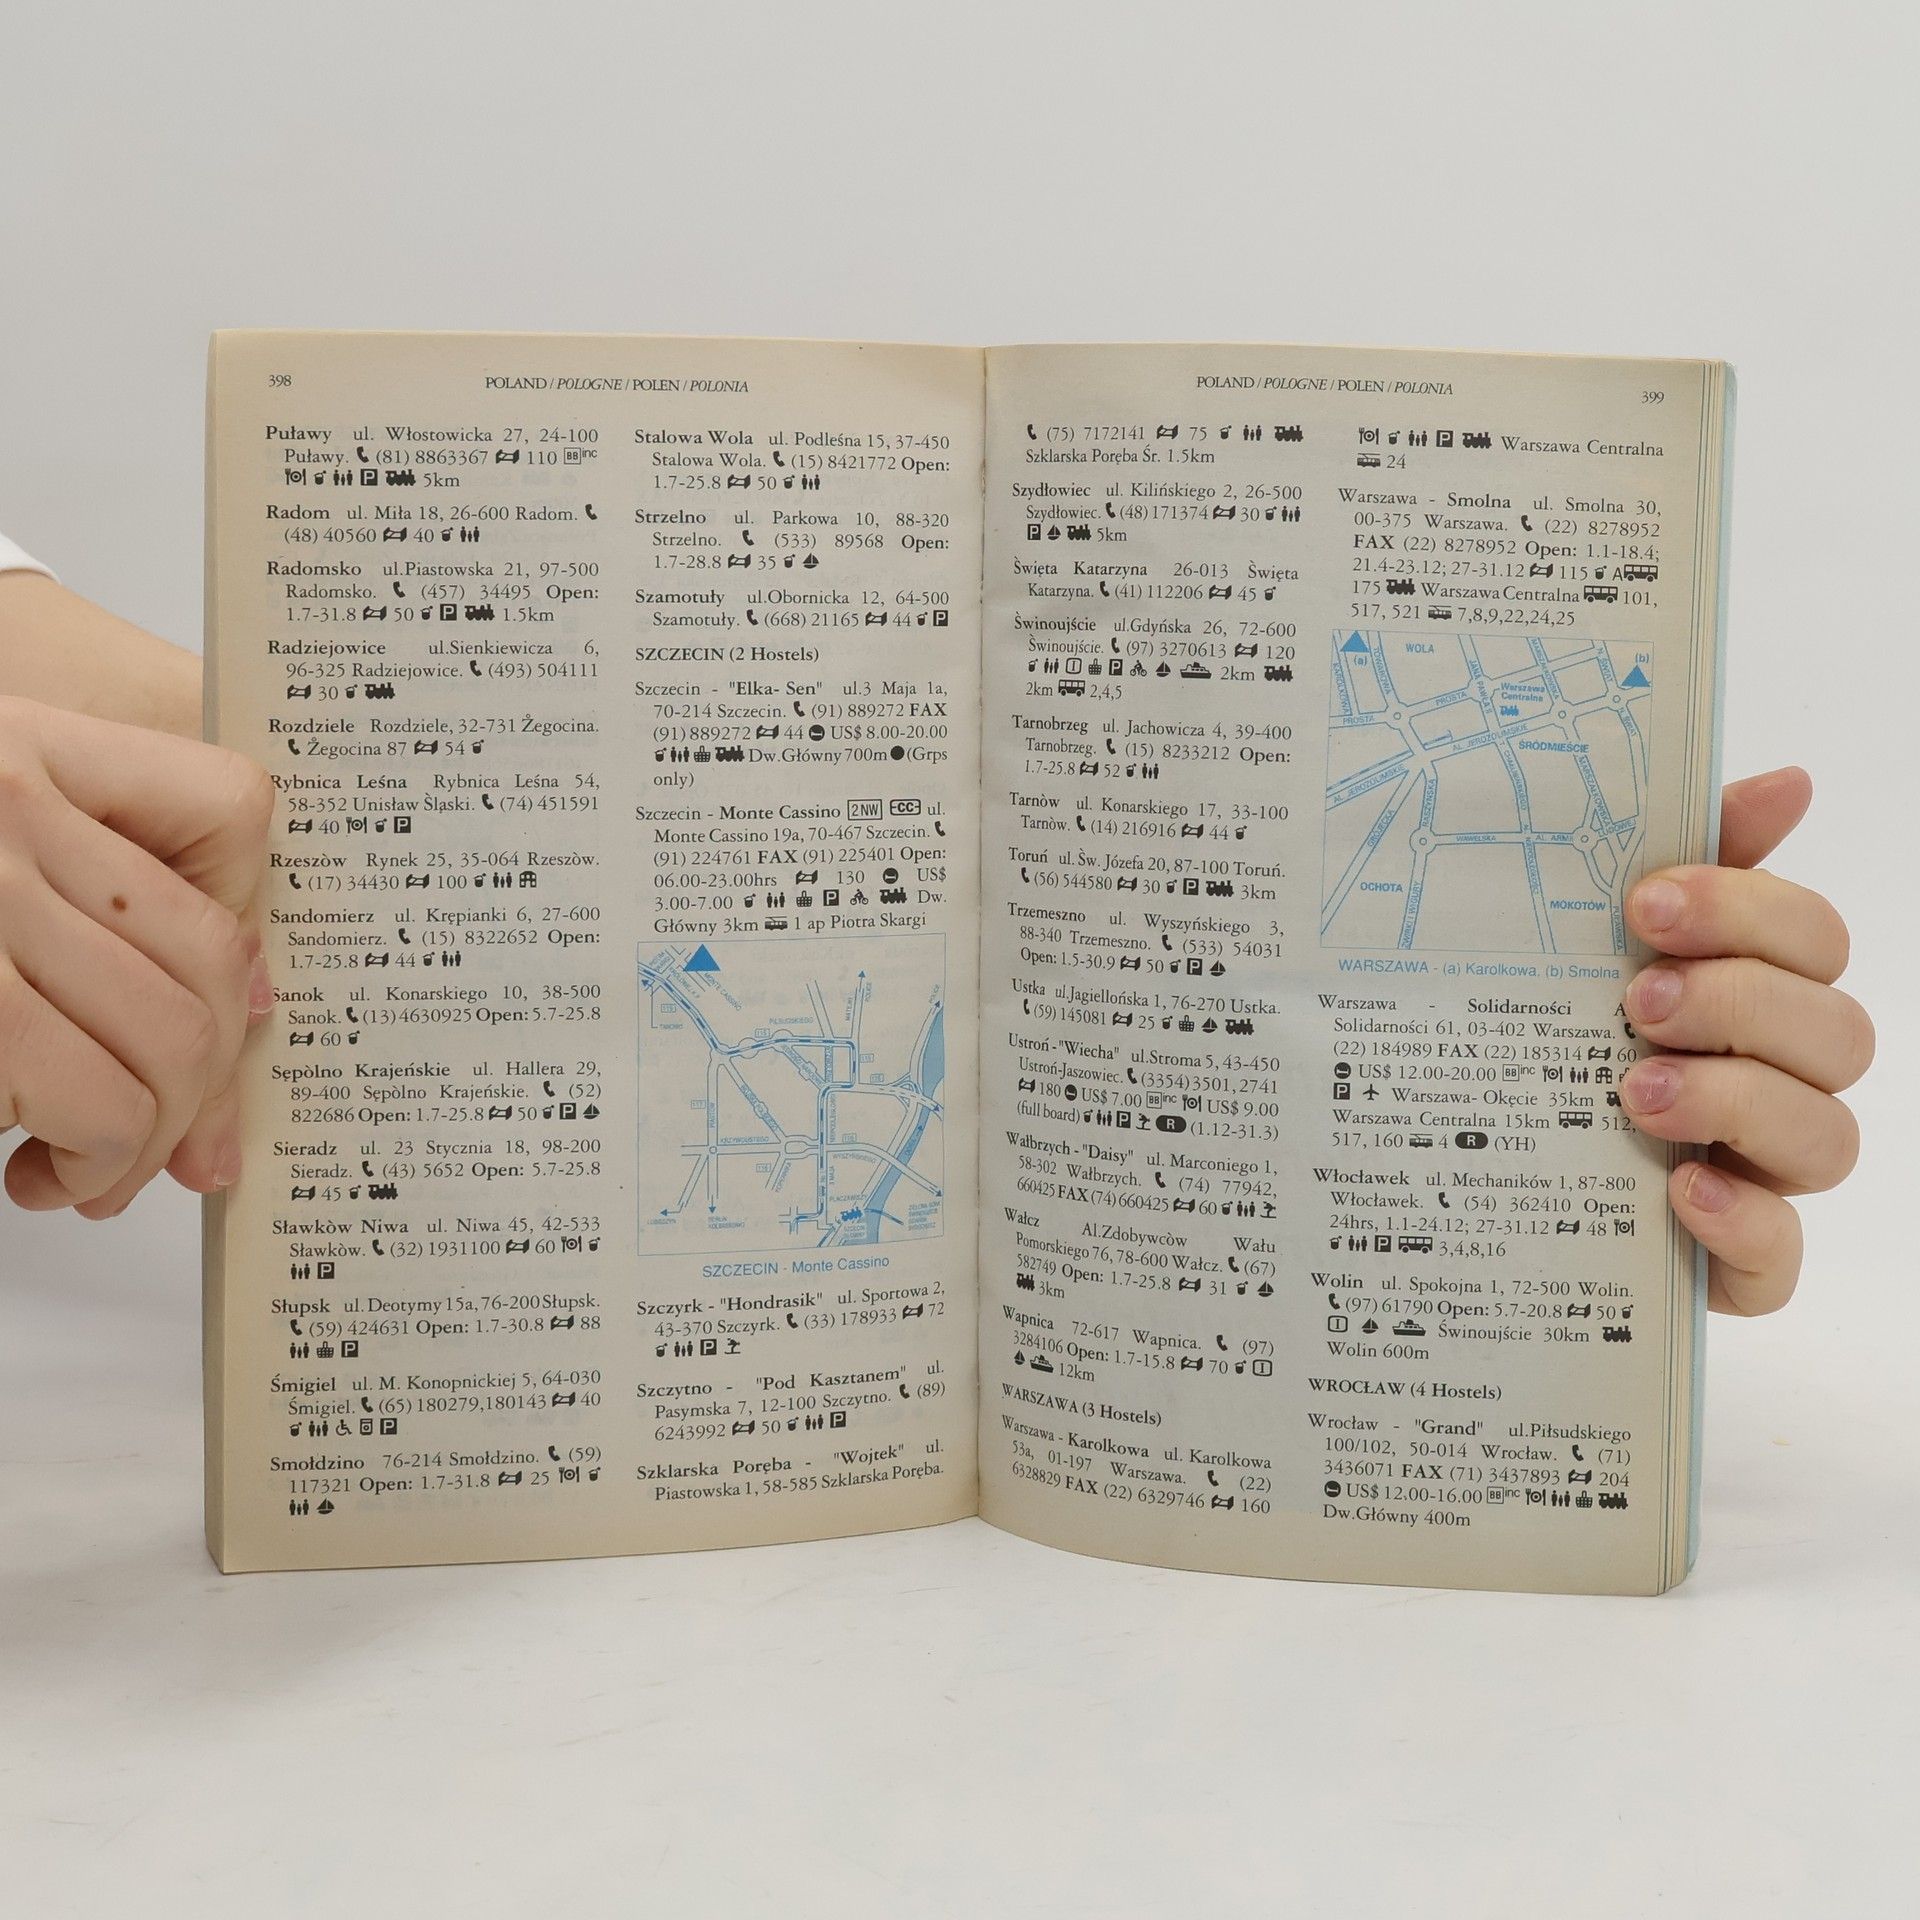 398
POLAND / POLOGNE / POLEN / POLONIA
Puławy ul. Włostowicka 27, 24-100
Puławy. (81) 8863367 110 BB inc
P 5km
Radom ul. Miła 18, 26-600 Radom.
(48) 40560 40
Radomsko ul.Piastowska 21, 97-500
Radomsko. (457) 34495 Open:
1.7-31.8 50 P 1.5km
Radziejowice ul.Sienkiewicza 6,
96-325 Radziejowice. (493) 504111
30
Rozdziele Rozdziele, 32-731 Żegocina.
Żegocina 87 54
Rybnica Leśna Rybnica Leśna 54,
58-352 Unisław Ślaski. (74) 451591
40 P
Rzeszòw Rynek 25, 35-064 Rzeszòw.
(17) 34430 100
Sandomierz ul. Krępianki 6, 27-600
Sandomierz. (15) 8322652 Open:
1.7-25.8 44
Sanok ul. Konarskiego 10, 38-500
Sanok. (13) 4630925 Open: 5.7-25.8
60
Sępòlno Krajeńskie ul. Hallera 29,
89-400 Sępòlno Krajeńskie. (52)
822686 Open: 1.7-25.8 50 P
Sieradz ul. 23 Stycznia 18, 98-200
Sieradz. (43) 5652 Open: 5.7-25.8
45
Sławkòw Niwa ul. Niwa 45, 42-533
Sławkòw. (32) 1931100 60
P
Słupsk ul.Deotymy 15a, 76-200 Słupsk.
(59) 424631 Open: 1.7-30.8 88
P
Śmigiel ul. M. Konopnickiej 5, 64-030
Śmigiel. (65) 180279,180143 40
P
Smołdzino 76-214 Smołdzino. (59)
117321 Open: 1.7-31.8 25
Stalowa Wola ul. Podleśna 15, 37-450
Stalowa Wola. (15) 8421772 Open:
1.7-25.8 50
Strzelno ul. Parkowa 10, 88-320
Strzelno. (533) 89568 Open:
1.7-28.8 35
Szamotuły ul.Obornicka 12, 64-500
Szamotuły. (668) 21165 44 P
SZCZECIN (2 Hostels)
Szczecin - "Elka- Sen" ul.3 Maja 1a,
70-214 Szczecin. (91) 889272 FAX
(91) 889272 44 US$ 8.00-20.00
Dw.Główny 700m (Grps
only)
Szczecin - Monte Cassino 2NW CC ul.
Monte Cassino 19a, 70-467 Szczecin.
(91) 224761 FAX (91) 225401 Open:
06.00-23.00hrs 130 US$
3.00-7.00 P Dw.
Główny 3km 1 ap Piotra Skargi
MONTE CASSINO
TANOWO
115
PIŁSUDSKIEGO
POLICE
PIASTÓW
KRZYWOUSTEGO
WYSZYŃSKIEGO
3 MAJA
LUBIESZYN
SZCZECIN - Monte Cassino
Szczyrk - "Hondrasik" ul. Sportowa 2,
43-370 Szczyrk. (33) 178933 72
P
Szczytno - "Pod Kasztanem" ul.
Pasymska 7, 12-100 Szczytno. (89)
6243992 50 P
Szklarska Poręba - "Wojtek" ul.
Piastowska 1, 58-585 Szklarska Poręba.
POLAND / POLOGNE / POLEN / POLONIA
399
(75) 7172141 75
Szklarska Poręba Śr. 1.5km
Szydłowiec ul. Kilińskiego 2, 26-500
Szydłowiec. (48) 171374 30
P 5km
Święta Katarzyna 26-013 Święta
Katarzyna. (41) 112206 45
Świnoujście ul.Gdyńska 26, 72-600
Świnoujście. (97) 3270613 120
P 2km
2km 2,4,5
Tarnobrzeg ul. Jachowicza 4, 39-400
Tarnobrzeg. (15) 8233212 Open:
1.7-25.8 52
Tarnòw ul. Konarskiego 17, 33-100
Tarnòw. (14) 216916 44
Toruń ul. Św. Józefa 20, 87-100 Toruń.
(56) 544580 30 P 3km
Trzemeszno ul. Wyszyńskiego 3,
88-340 Trzemeszno. (533) 54031
Open: 1.5-30.9 50 P
Ustka ul.Jagiellońska 1, 76-270 Ustka.
(59) 145081 25
Ustroń -"Wiecha" ul.Stroma 5, 43-450
Ustroń-Jaszowiec. (3354) 3501, 2741
180 US$ 7.00 BB inc US$ 9.00
(full board) P R (1.12-31.3)
Wałbrzych - "Daisy" ul. Marconiego 1,
58-302 Wałbrzych. (74) 77942,
660425 FAX (74) 660425 60
Wałcz Al.Zdobywcòw Wału
Pomorskiego 76, 78-600 Wałcz. (67)
582749 Open: 1.7-25.8 31
3km
Wapnica 72-617 Wapnica. (97)
3284106 Open: 1.7-15.8 70
12km
WARSZAWA (3 Hostels)
Warszawa - Karolkowa ul. Karolkowa
53a, 01-197 Warszawa. (22)
6328829 FAX (22) 6329746 160
P Warszawa Centralna
24
Warszawa - Smolna ul. Smolna 30,
00-375 Warszawa. (22) 8278952
FAX (22) 8278952 Open: 1.1-18.4;
21.4-23.12; 27-31.12 115 A
175 Warszawa Centralna 101,
517, 521 7,8,9,22,24,25
(a)
WOLA
(b)
KAROLKOWA
TOWAROWA
JANA PAWŁA II
MARSZAŁKOWSKA
N. ŚWIAT
PROSTA
PROSTA
Warszawa
Centralna
AL. JEROZOLIMSKIE
ŚRÓDMIEŚCIE
AL. JEROZOLIMSKIE
GRÓJECKA
RASZYŃSKA
WAWELSKA
AL. ARMII
LUDOWEJ
OCHOTA
ŻWIRKI I WIGURY
MOKOTÓW
PUŁAWSKA
WARSZAWA - (a) Karolkowa, (b) Smolna
Warszawa - Solidarności
Solidarności 61, 03-402 Warszawa.
(22) 184989 FAX (22) 185314 60
US$ 12.00-20.00 BB inc
P Warszawa- Okęcie 35km
Warszawa Centralna 15km 512,
517, 160 4 R (YH)
Włocławek ul. Mechaników 1, 87-800
Włocławek. (54) 362410 Open:
24hrs, 1.1-24.12; 27-31.12 48
P 3,4,8,16
Wolin ul. Spokojna 1, 72-500 Wolin.
(97) 61790 Open: 5.7-20.8 50
Świnoujście 30km
Wolin 600m
WROCŁAW (4 Hostels)
Wrocław - "Grand" ul.Piłsudskiego
100/102, 50-014 Wrocław. (71)
3436071 FAX (71) 3437893 204
US$ 12.00-16.00 BB inc
Dw.Główny 400m